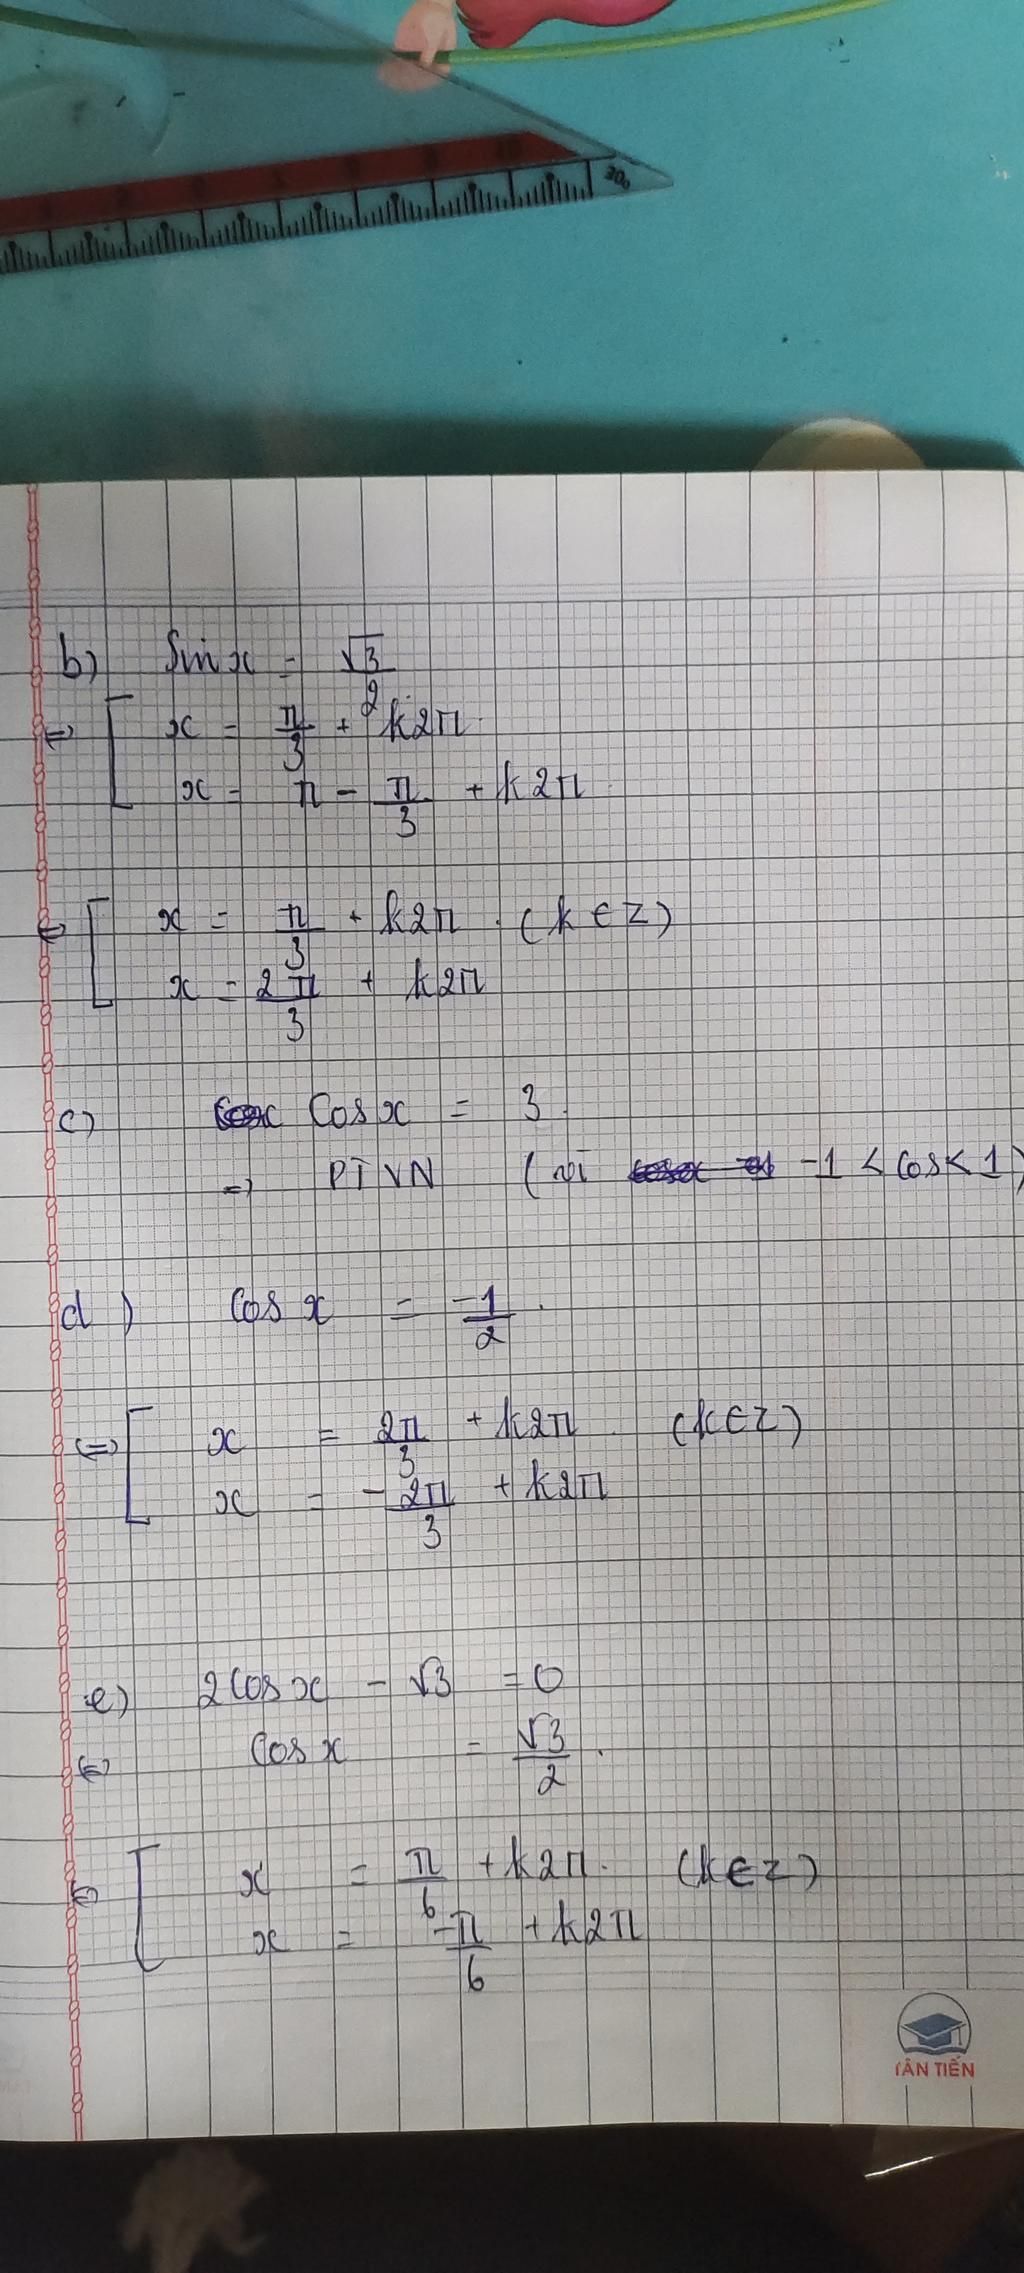 300
b) Sin x = √3/2
⇔ [ x = π/3 + k2π
x = π - π/3 + k2π
⇔ [ x = π/3 + k2π. (k ∈ Z)
x = 2π/3 + k2π
c) Cos x = 3
=> PTVN (vì -1 < cos < 1)
d) Cos x = -1/2.
⇔ [ x = 2π/3 + k2π (k ∈ Z)
x = -2π/3 + k2π
e) 2Cos x - √3 = 0
⇔ Cos x = √3/2.
⇔ [ x = π/6 + k2π. (k ∈ Z)
x = -π/6 + k2π
TÂN TIẾN